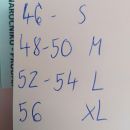 46 - S
48-50 M
52-54 L
56 XL